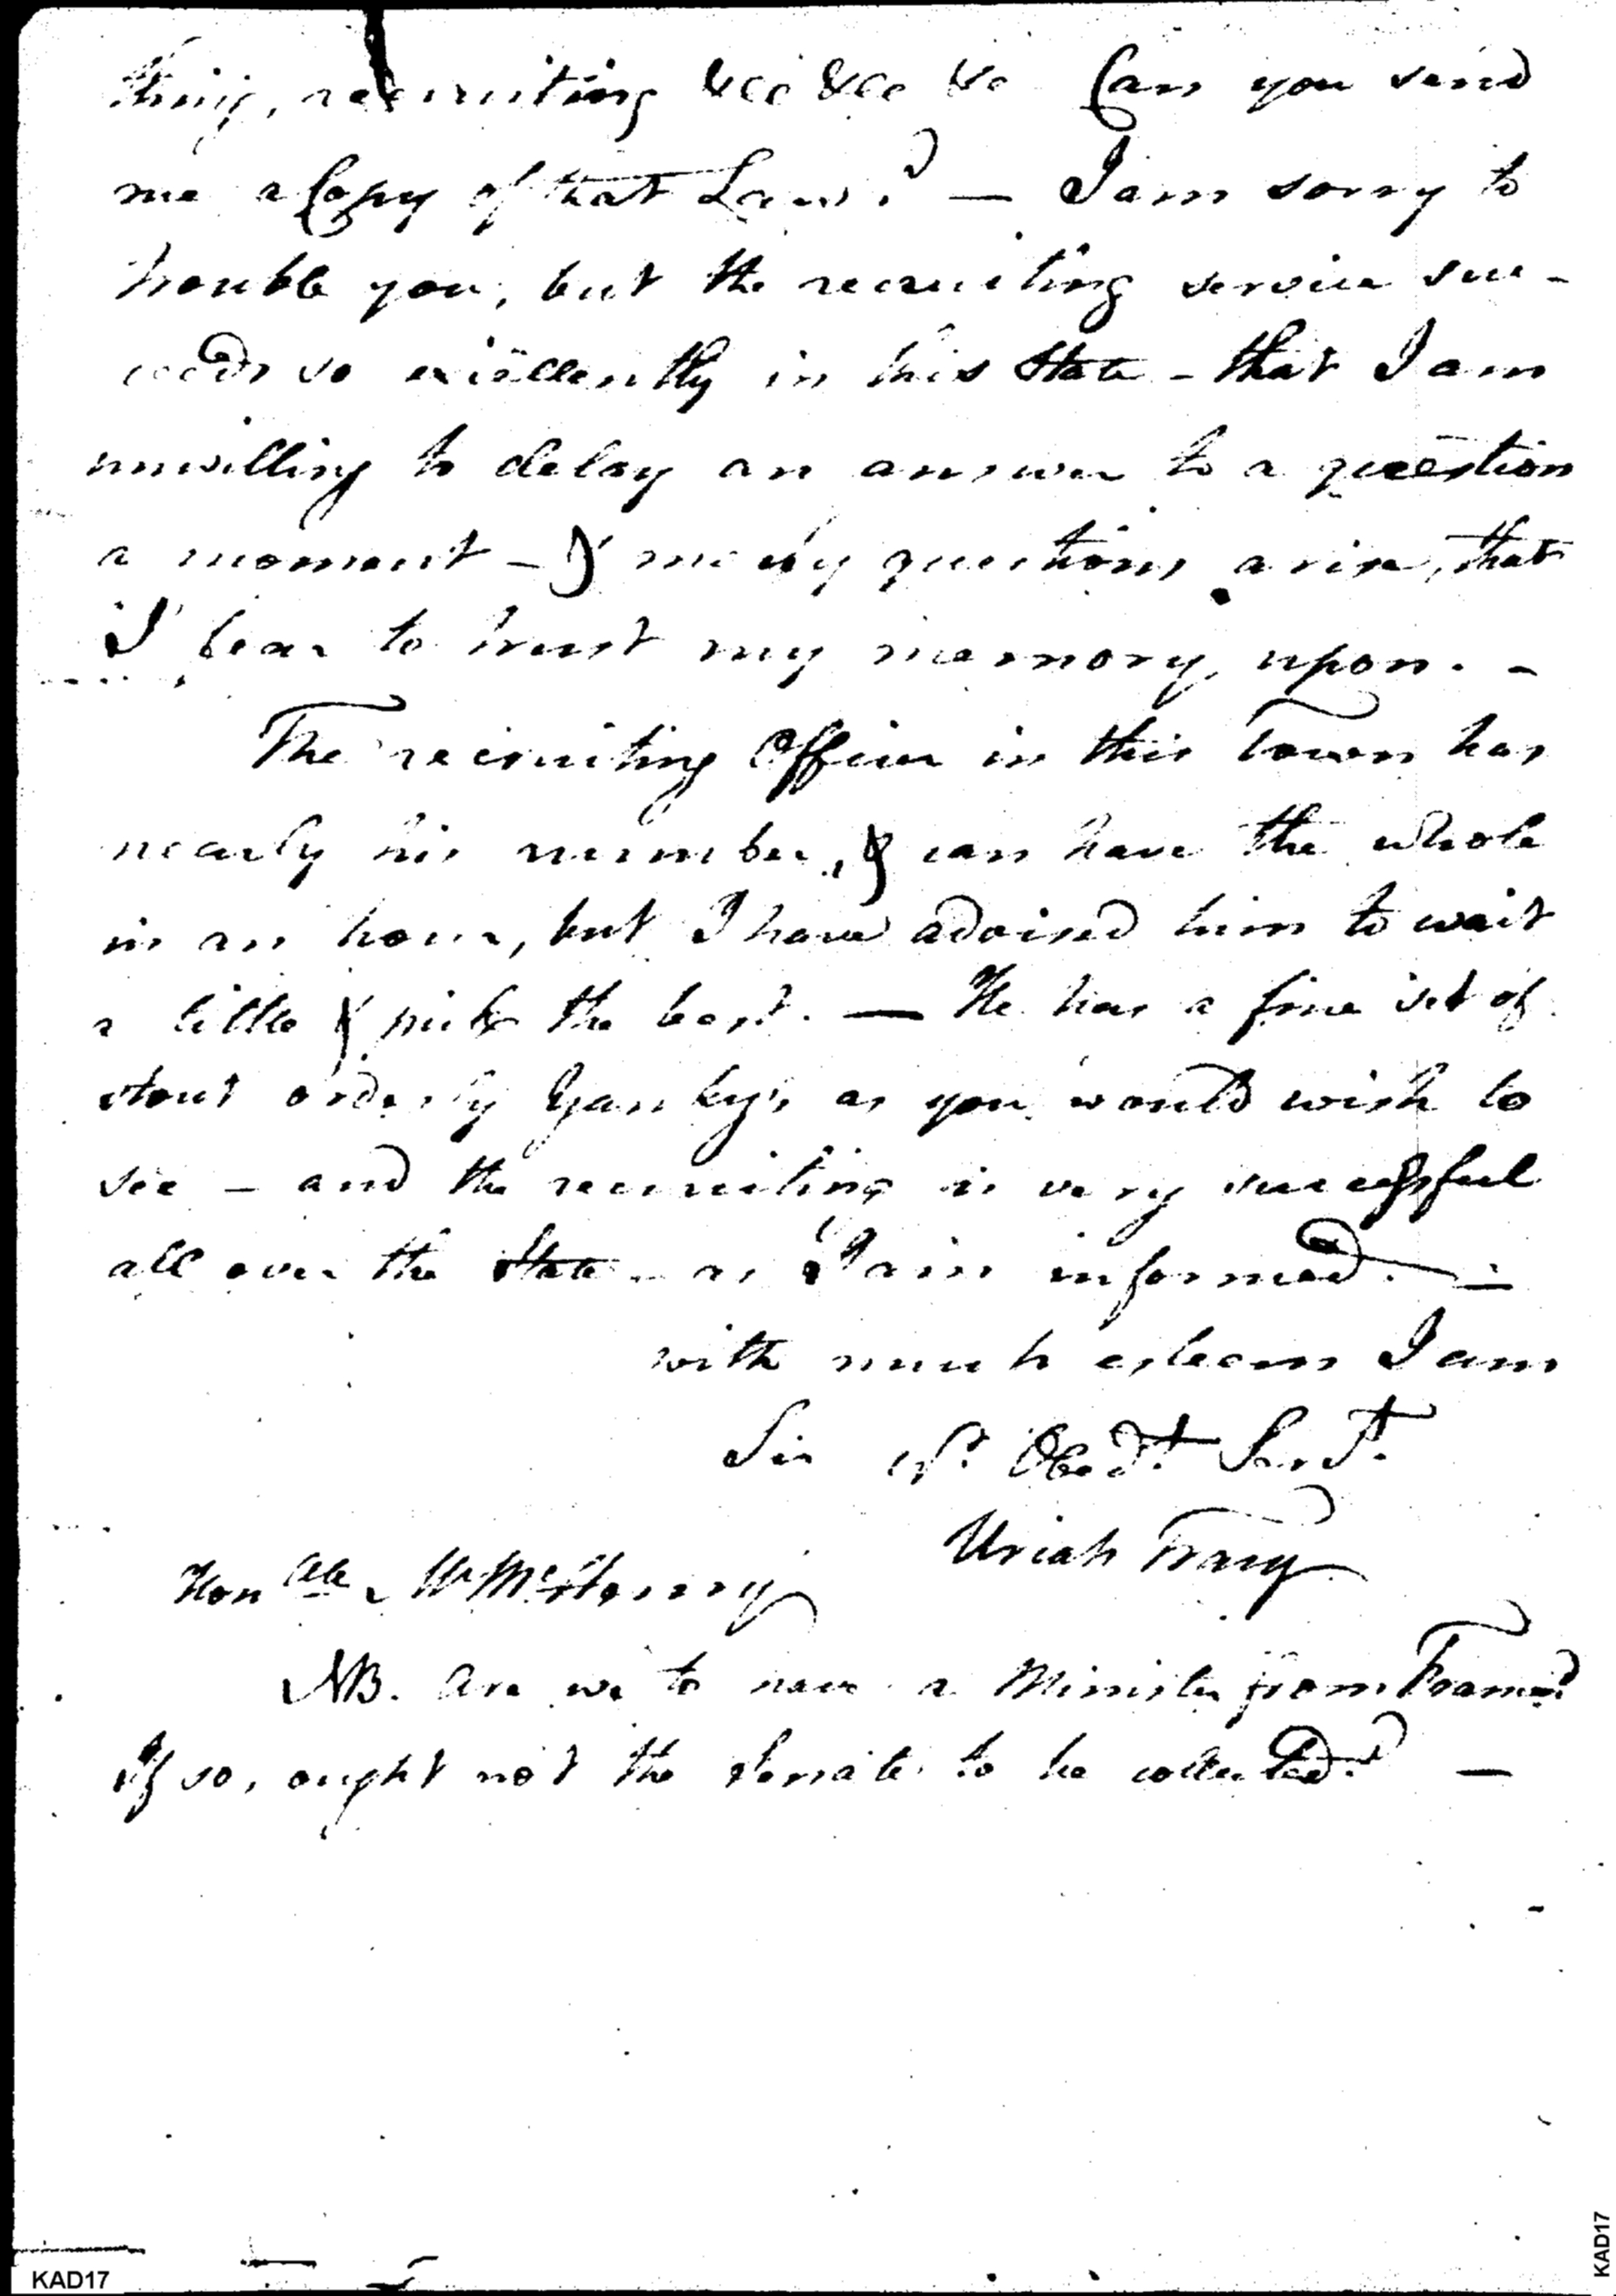 thing, recruiting &c &c &c Can you send
me a Copy of that Law? — I am sorry to
trouble you, but the recruiting service suc-
ceeds so excellently in this State - that I am
unwilling to delay an answer to a question
a moment - & many questions arise, that
I fear to trust my memory upon. -
The recruiting Officer in this Town has
nearly his number, & can have the whole
in an hour, but I have advised him to wait
a little & pick the best. — He has a fine set of
stout orderly Yankys as you would wish to
see - and the recruiting is very successful
all over the State - as I am informed. —
with much esteem I am
Sir Yr. Obedt. Servt.
Uriah Tracy
Honable Mr McHenry
NB. Are we to have a Minister from France?
If so, ought not the Senate to be collected? —
KAD17
KAD17